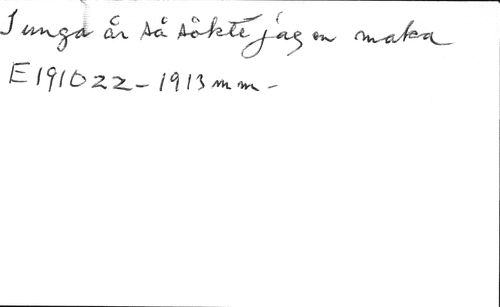 I unga år så sökte jag en maka
E1910zz-1913mm-